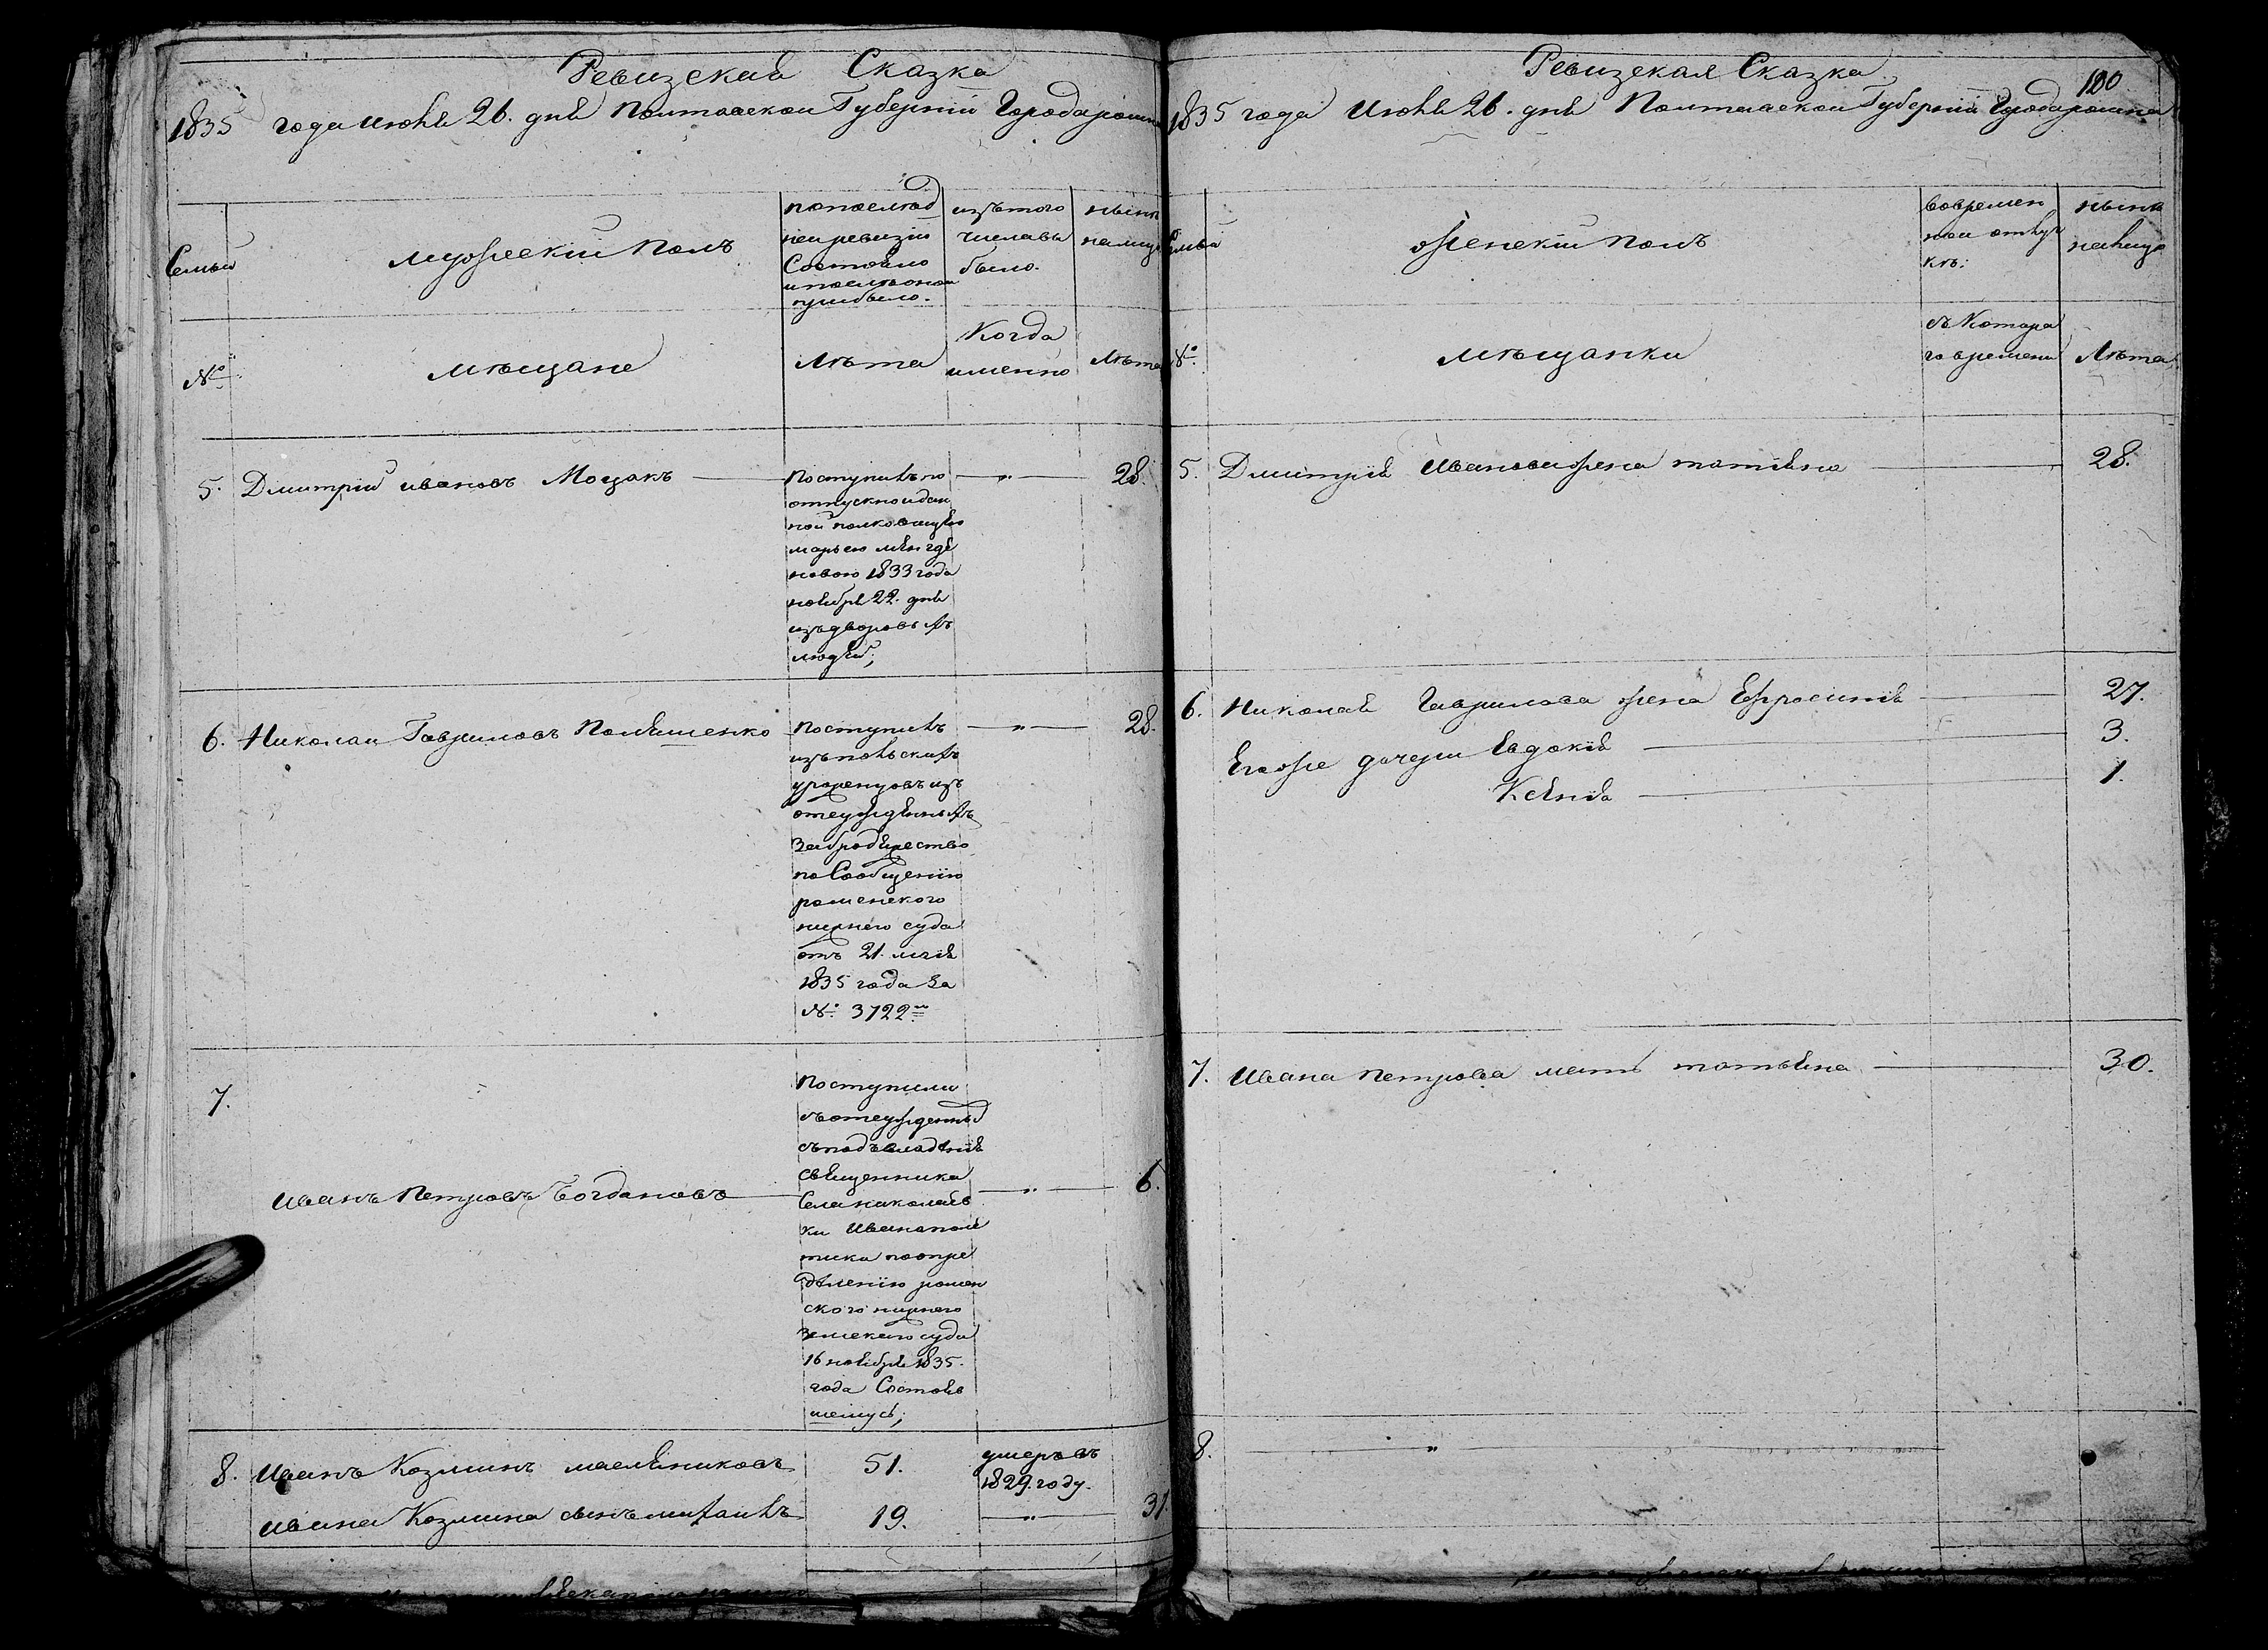 Ревизская Сказка
1835 года июня 26. дня Полтавской Губернии Города ромна
Семьи
мужескій полъ
по послед
ней ревизіи
Состояло
и после оной
прибыло.
изътого
числавы
было.
ныне
налицо
№
мещане
Лета
Когда
именно
Лета
5. Дмитрій ивановъ Моцакъ 28.
Поступилъ по
отпускной дан
ной полковницею
марьею
новою 1833 года
ноября 22. дня
издворовыхъ
людей;
6. Николай Гавриловъ Поляшенко 28.
поступилъ
изъ польскихъ
уроженцовъ изъ
отсужденныхъ
за бродяжество
по Сообщенію
роменского
нижнего суда
отъ 21. мая
1835 года За
№ 3722.м
7.
Иванъ Петровъ Богдановъ 6.
поступили
съ отсужденных
съподъ владенія
священника
Села николаев
ки Ивана поле
тики по опре
деленію ромен
ского нижнего
земского суда
16 ноября 1835.
года Состояв
шемуся;
8. Иванъ Козминъ маслениковъ 51.
умеръ въ
1829. году.
ивана Козмина сынъ михаилъ 19. 31.
100
Ревизская Сказка
1835 года Июня 26. дня Полтавской Губернии Города ромна
Семья
женскій полъ
вовремен
ной отлуч
ке:
ныне
налицо
№
мещанки
съ Котора
го времени
Лета
5. Дмитрія Иванова жена татіяна 28.
6. Николая Гаврилова жена Ефросинія 27.
Егоже дочери Евдокія 3.
Ксенія 1.
7. Ивана петрова мать татьяна 30.
8.